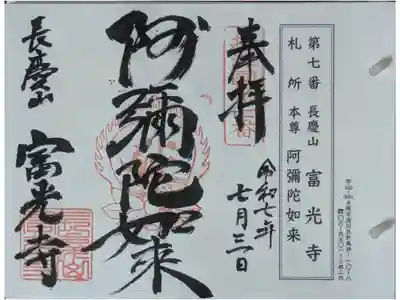 第七番 長慶山 富光寺
札所 本尊 阿彌陀如来
奉拝
令和七年
七月三一日
阿彌陀如来
長慶山 富光寺